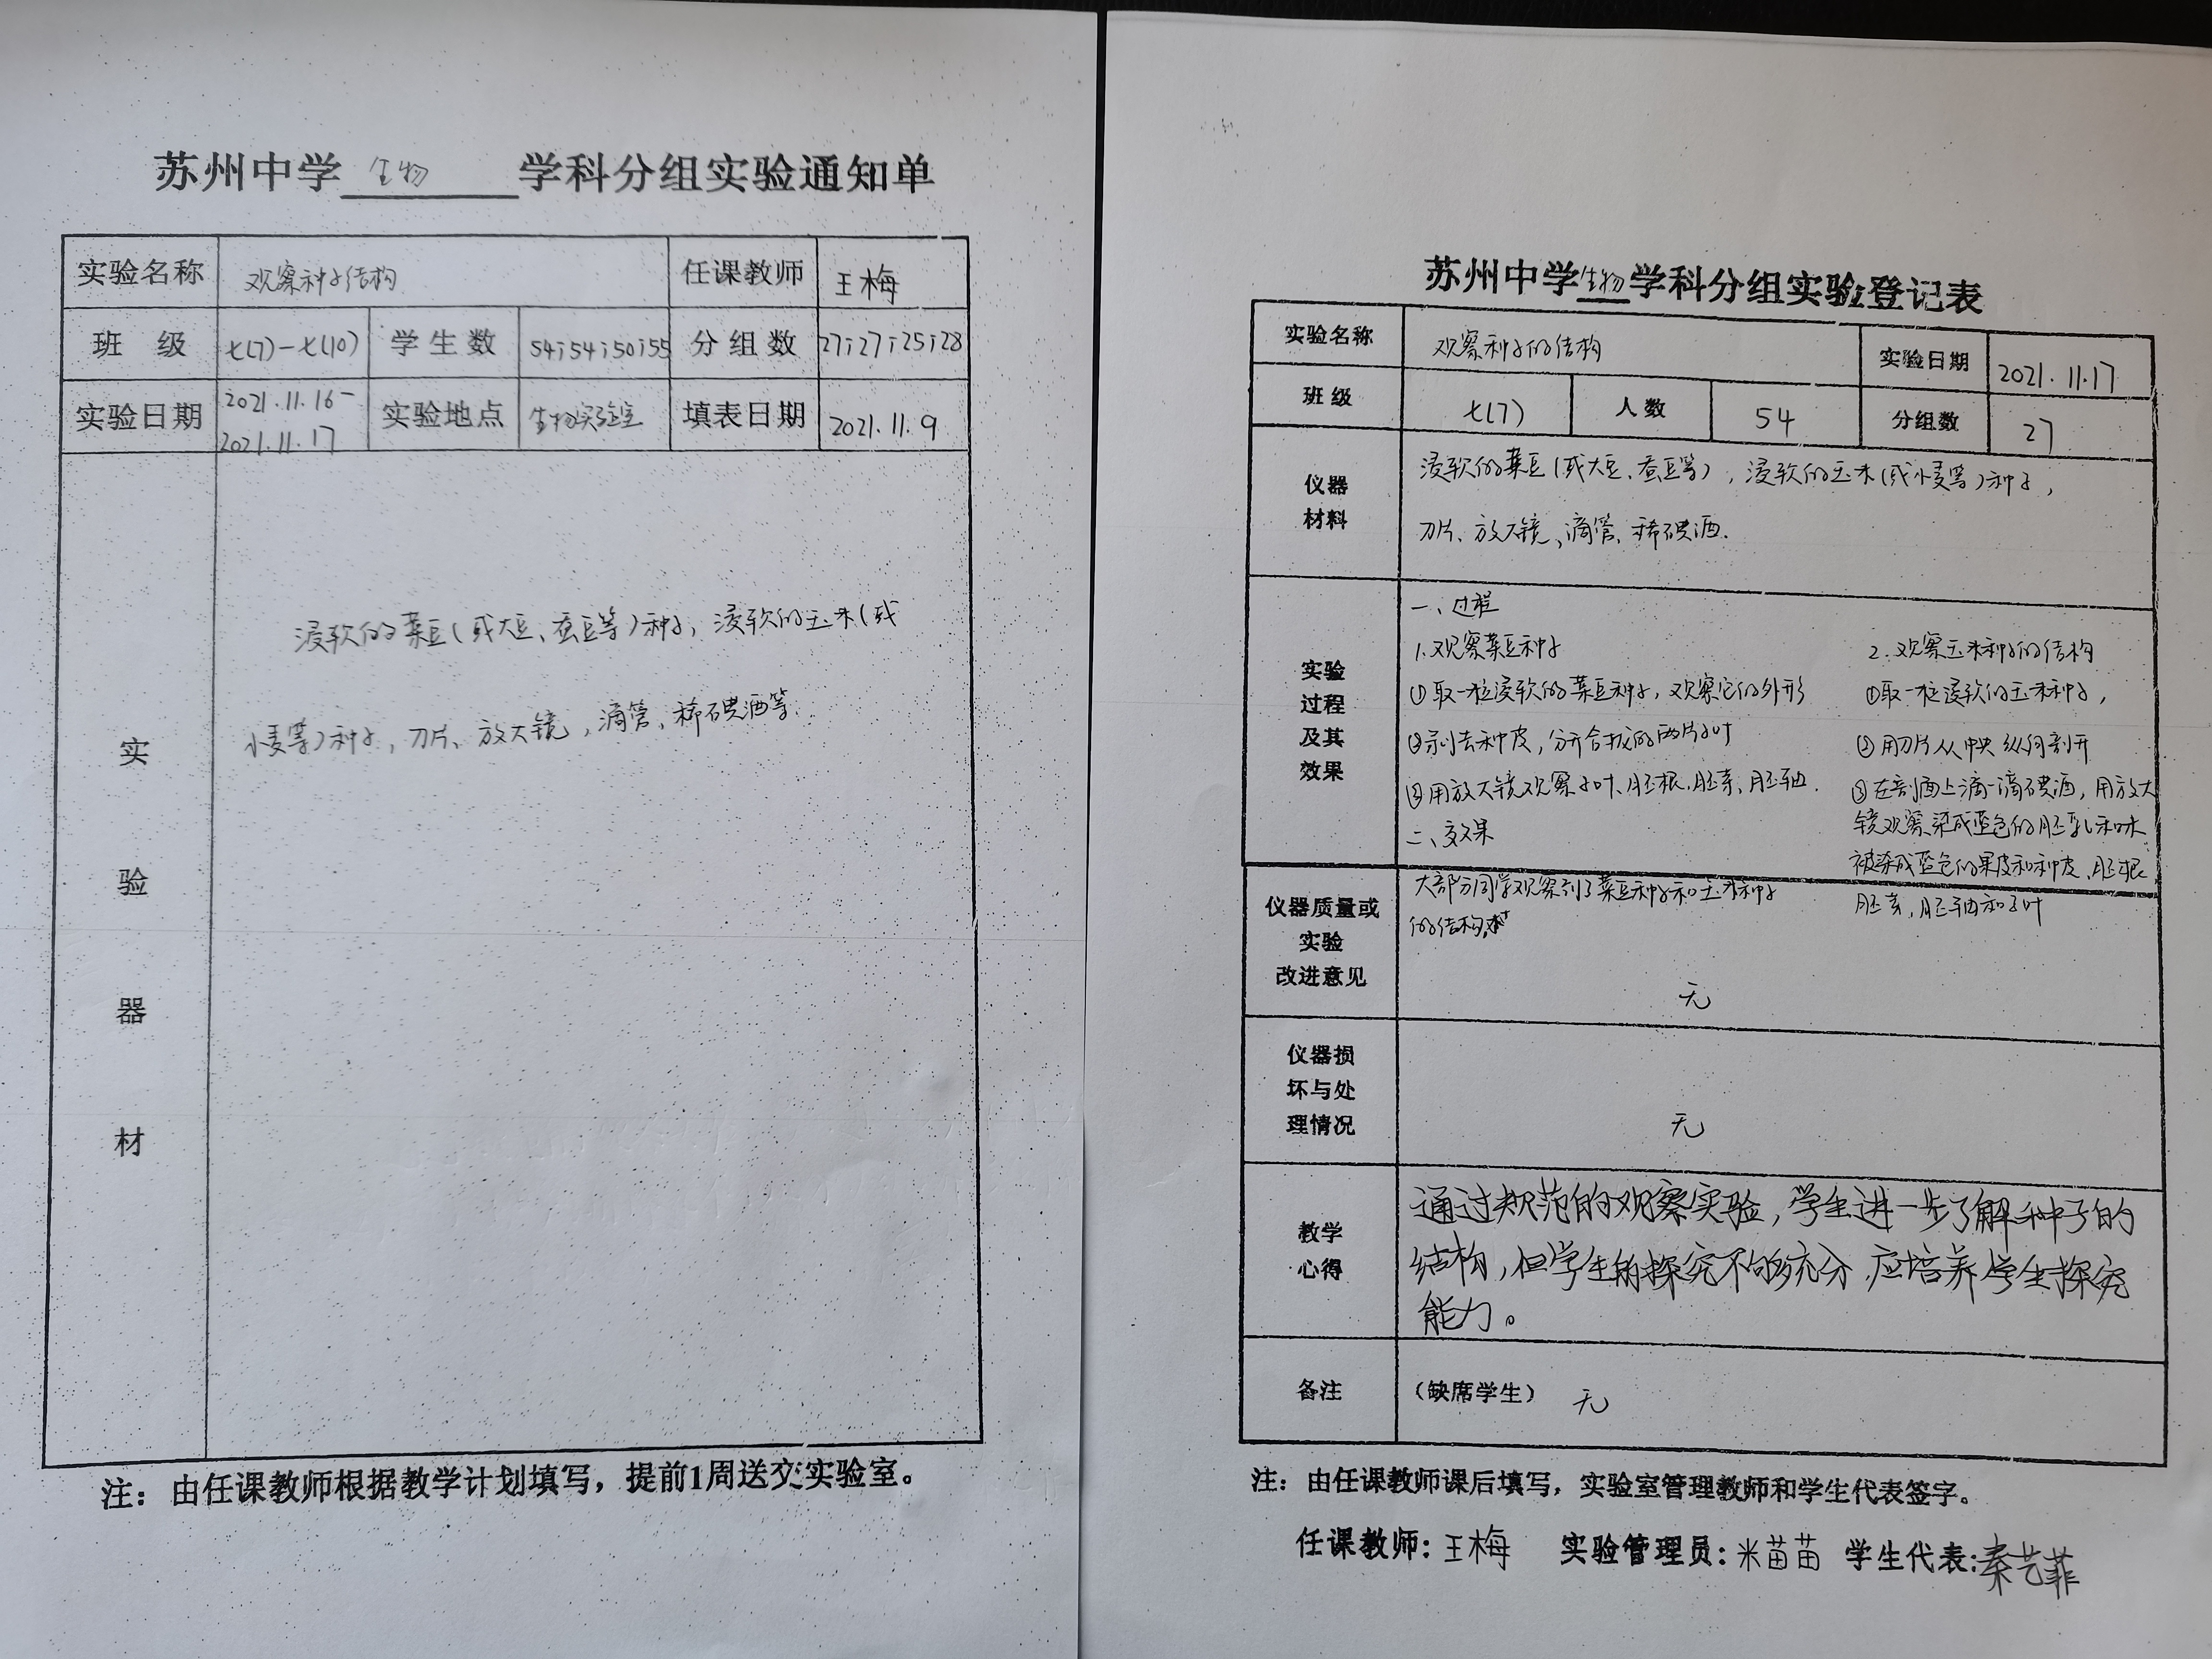 苏州中学 生物 学科分组实验通知单
实验名称 观察种子结构 任课教师 王梅
班 级 七(7)-七(10) 学生数 54;54;50;55 分组数 27;27;25;28
实验日期 2021.11.16- 2021.11.17 实验地点 生物实验室 填表日期 2021.11.9
实验器材
浸软的菜豆(或大豆、蚕豆等)种子,浸软的玉米(或
小麦等)种子,刀片、放大镜,滴管、稀碘酒等.
注：由任课教师根据教学计划填写，提前1周送交实验室。
苏州中学生物学科分组实验登记表
实验名称 观察种子的结构 实验日期 2021.11.17
班级 七(7) 人数 54 分组数 27
仪器材料
浸软的菜豆(或大豆、蚕豆等),浸软的玉米(或小麦等)种子,
刀片、放大镜、滴管、稀碘酒.
实验过程及其效果
一、过程
1.观察菜豆种子
①取一粒浸软的菜豆种子,观察它的外形
②剥去种皮,分开合拢的两片子叶
③用放大镜观察子叶、胚根、胚芽、胚轴.
二、效果
大部分同学观察到了菜豆种子和玉米种子
的结构.
2.观察玉米种子的结构
①取一粒浸软的玉米种子,
②用刀片从中央纵向剖开
③在剖面上滴一滴碘酒,用放大
镜观察染成蓝色的胚乳和未
被染成蓝色的果皮和种皮、胚根
胚芽,胚轴和子叶
仪器质量或实验改进意见
无
仪器损坏与处理情况
无
教学心得
通过规范的观察实验,学生进一步了解种子的
结构,但学生的探究不够充分,应培养学生探究
能力。
备注 (缺席学生) 无
注：由任课教师课后填写，实验室管理教师和学生代表签字。
任课教师：王梅 实验管理员：米苗苗 学生代表：秦艺菲